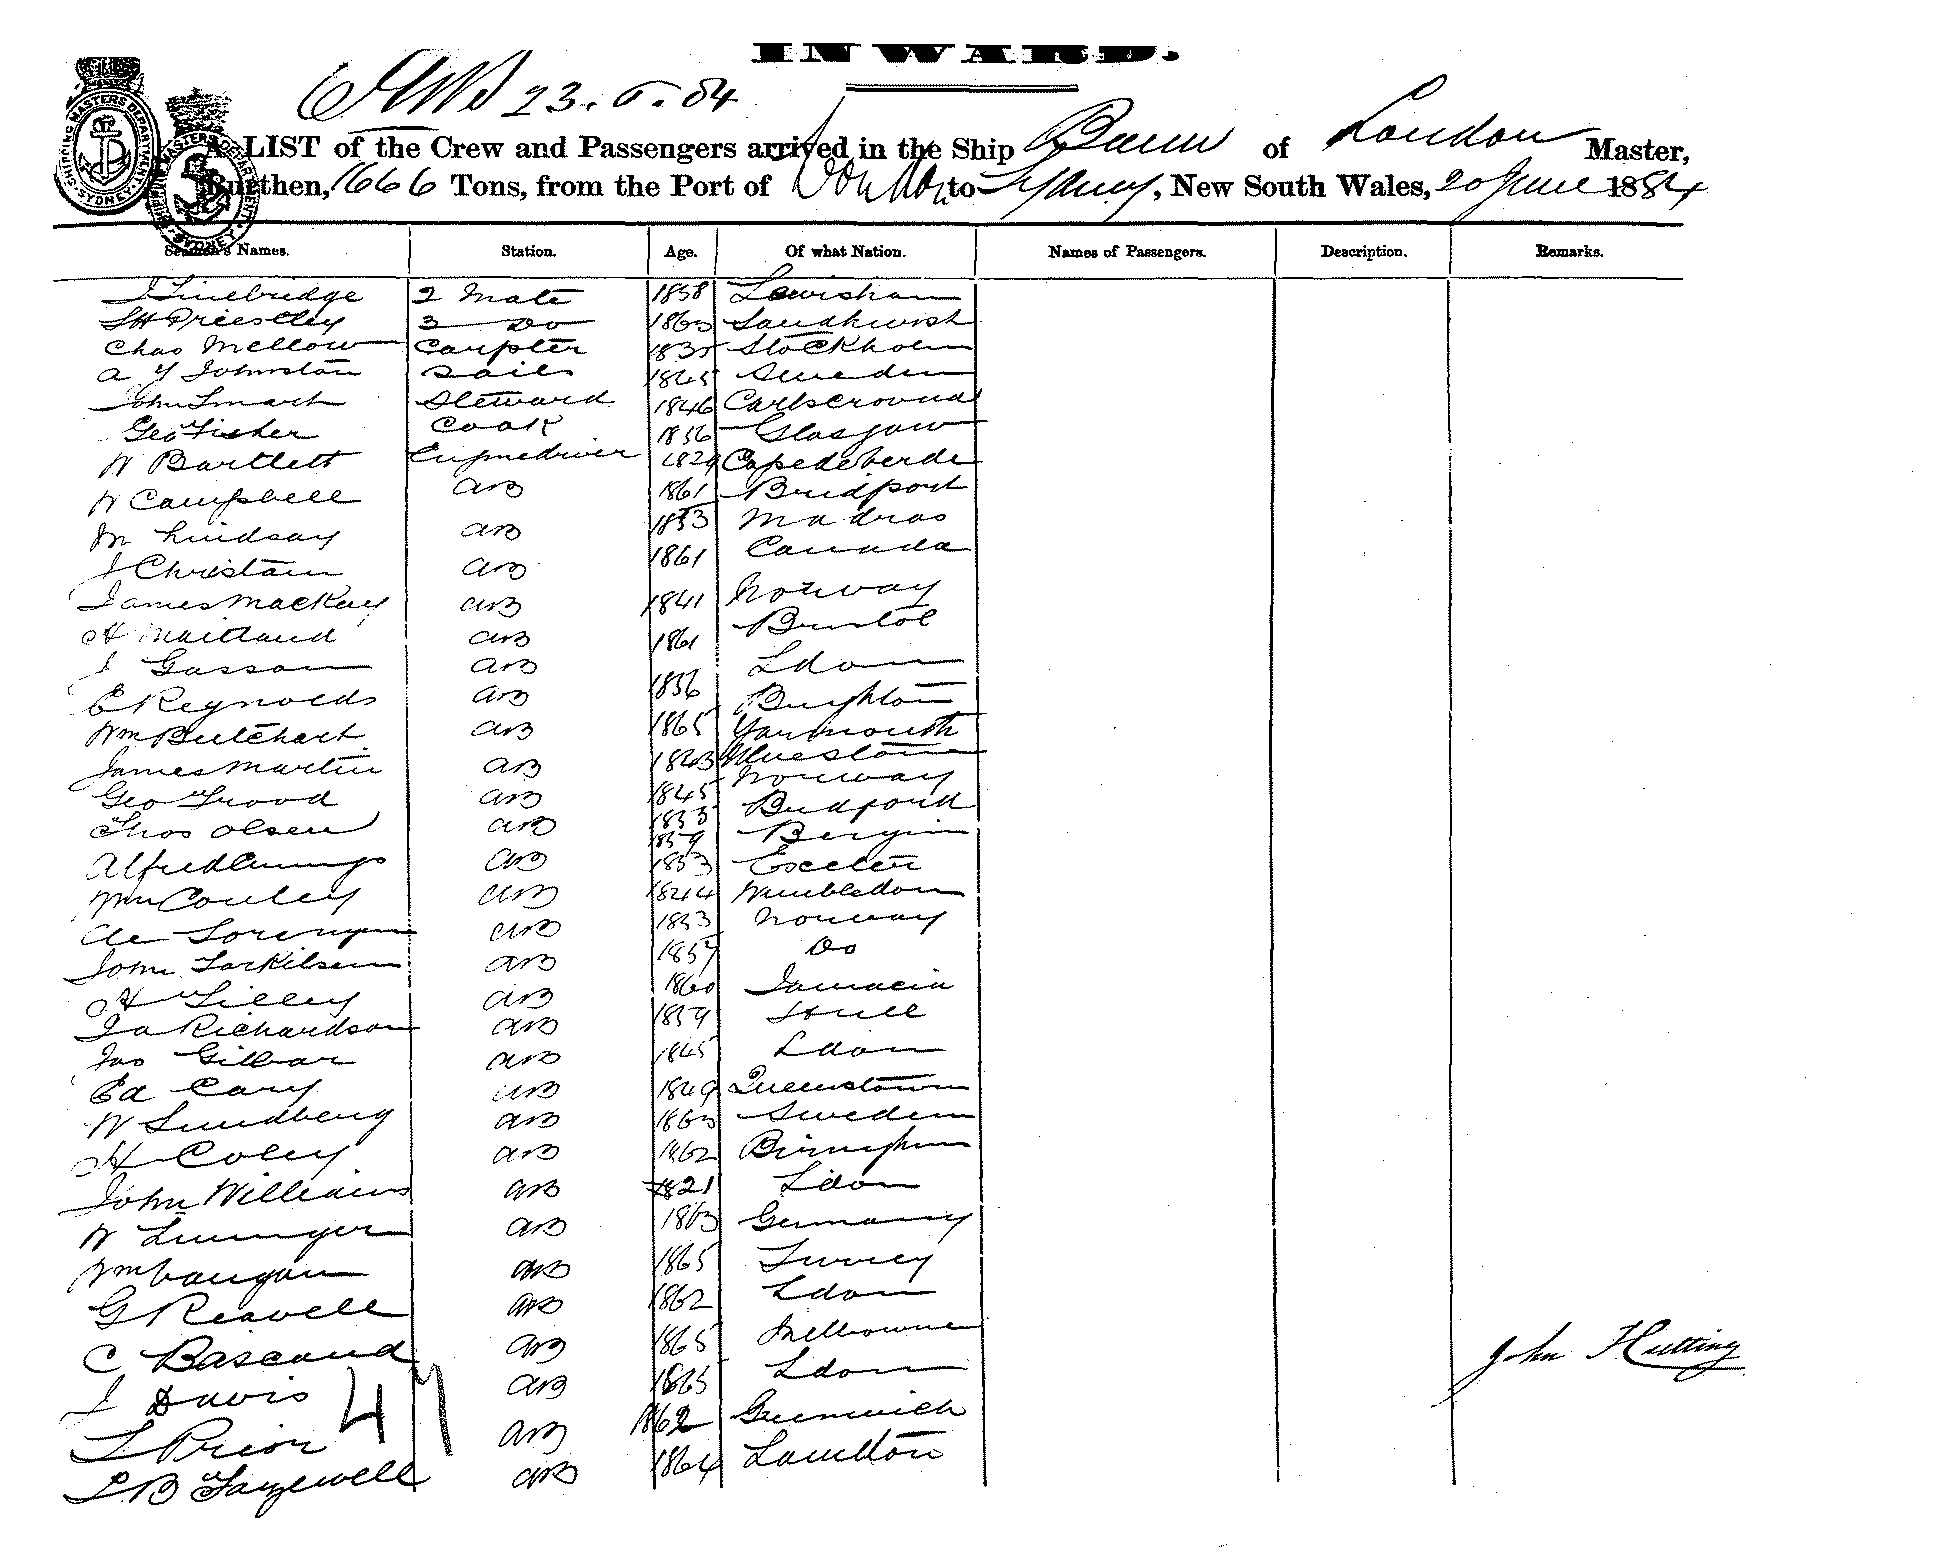 INWARD.
23.6.84
A LIST of the Crew and Passengers arrived in the Ship of London Master,
Burthen, 1666 Tons, from the Port of London to Sydney, New South Wales, 20 June 1884
Seamen's Names. Station. Age. Of what Nation. Names of Passengers. Description. Remarks.
J Linebridge 2 Mate 1858 Lewisham
SH Priestley 3 Do 1863 Sandhurst
Chas Mellow Carpter 1835 Stockholm
A J Johnston Sails 1845 Sweden
John Smart Steward 1846
Geo Fisher Cook 1856 Glasgow
W Bartlett Enginedriver 1829 Capedeverde
W Campbell AB 1861 Bridport
M Lindsay AB 1853 Madras
J Christain AB 1861 Canada
James Mackay AB 1841 Norway
H Maitland AB 1861 Bristol
J Gasson AB Ldon
E Reynolds AB 1856 Brighton
Wm Butchart AB 1865 Yarmouth
James Martin AB 1843
Geo Trood AB 1845 Norway
Thos Olsen AB 1833
Alfred AB 1859 Bergin
Wm Couley AB 1853 Exceter
AB 1844 Wimbledon
John Torkilsen AB 1853 Norway
H Tilley AB 1857 Do
Ja Richardson AB 1860 Jamacia
Jas Gilbar AB 1859 Hull
Ed Cary AB 1845 Ldon
W Sundberg AB 1849 Queenstown
H Coley AB 1863 Sweden
John Williams AB 1862
W AB 1821 Ldon
Wm Vaugan AB 1863 Germany
G Reavell AB 1865 Surrey
C Bascand AB 1862 Ldon
J Davis AB 1865 Melbourne
L Prior AB 1865 Ldon
AB 1862 Greenwich
1864
47
John Hutting
SHIPPING MASTERS DEPARTMENT SYDNEY